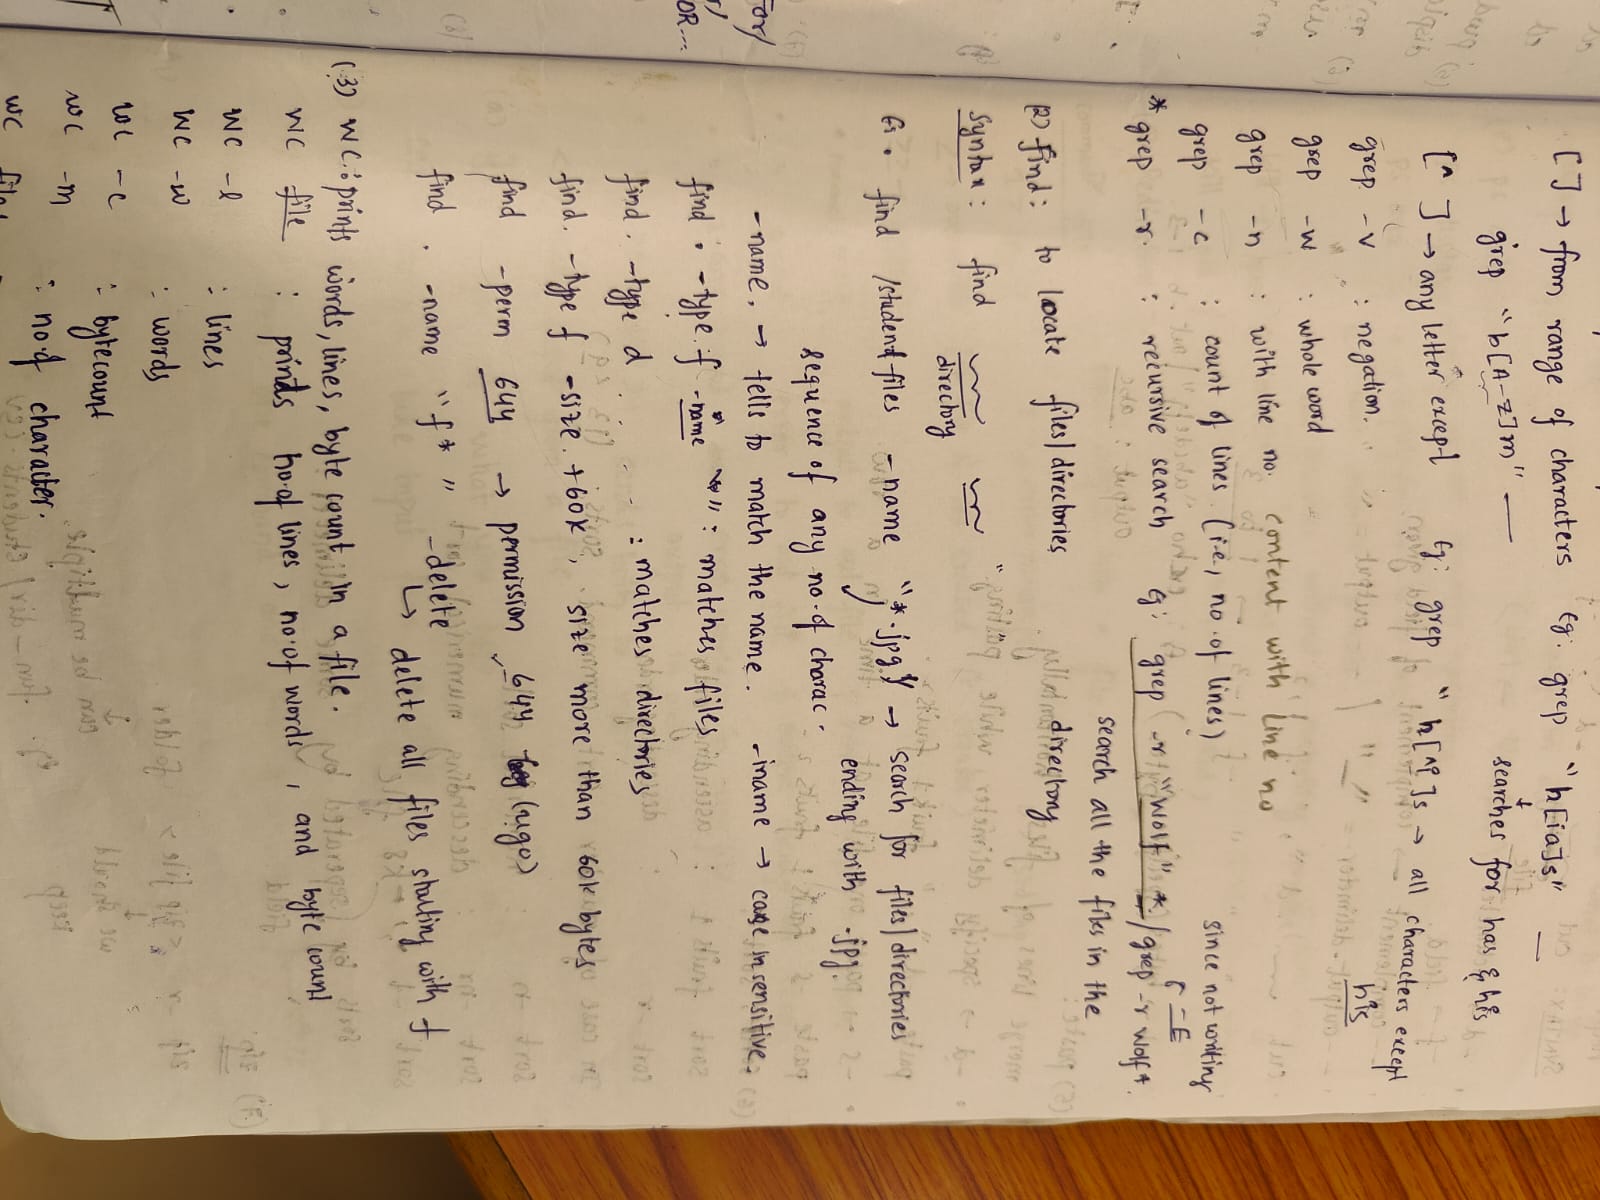 [ ] → from range of characters Eg: grep "h[ia]s" —
grep "h[A-z]m" —
searches for has & his
[^ ] → any letter except Eg: grep "h[^i]s → all characters except
his
grep -v : negation.
grep -w : whole word
grep -n : with line no. content with line no
grep -c : count of lines (i.e, no. of lines) since not writing
-E
* grep -r. : recursive search Eg: grep -r "wolf" * / grep -r wolf *.
search all the files in the
directory
(2) find: to locate files/directories
Syntax: find
directory
Eg. find /student files -name "*.jpg" → search for files/directories
ending with .jpg.
sequence of any no. of charac.
-name, → tells to match the name. -iname → case insensitive.
find . -type f -name " " : matches files
find. -type d : matches directories
find. -type f -size +60k , size more than 60k bytes
find -perm 644 → permission 644 (ugo)
find . -name "f*" -delete
↳ delete all files starting with f
(3) wc: prints words, lines, byte count in a file.
wc file : prints no. of lines, no. of words, and byte count
wc -l : lines
wc -w : words
wc -c : bytecount
wc -m : no. of character.